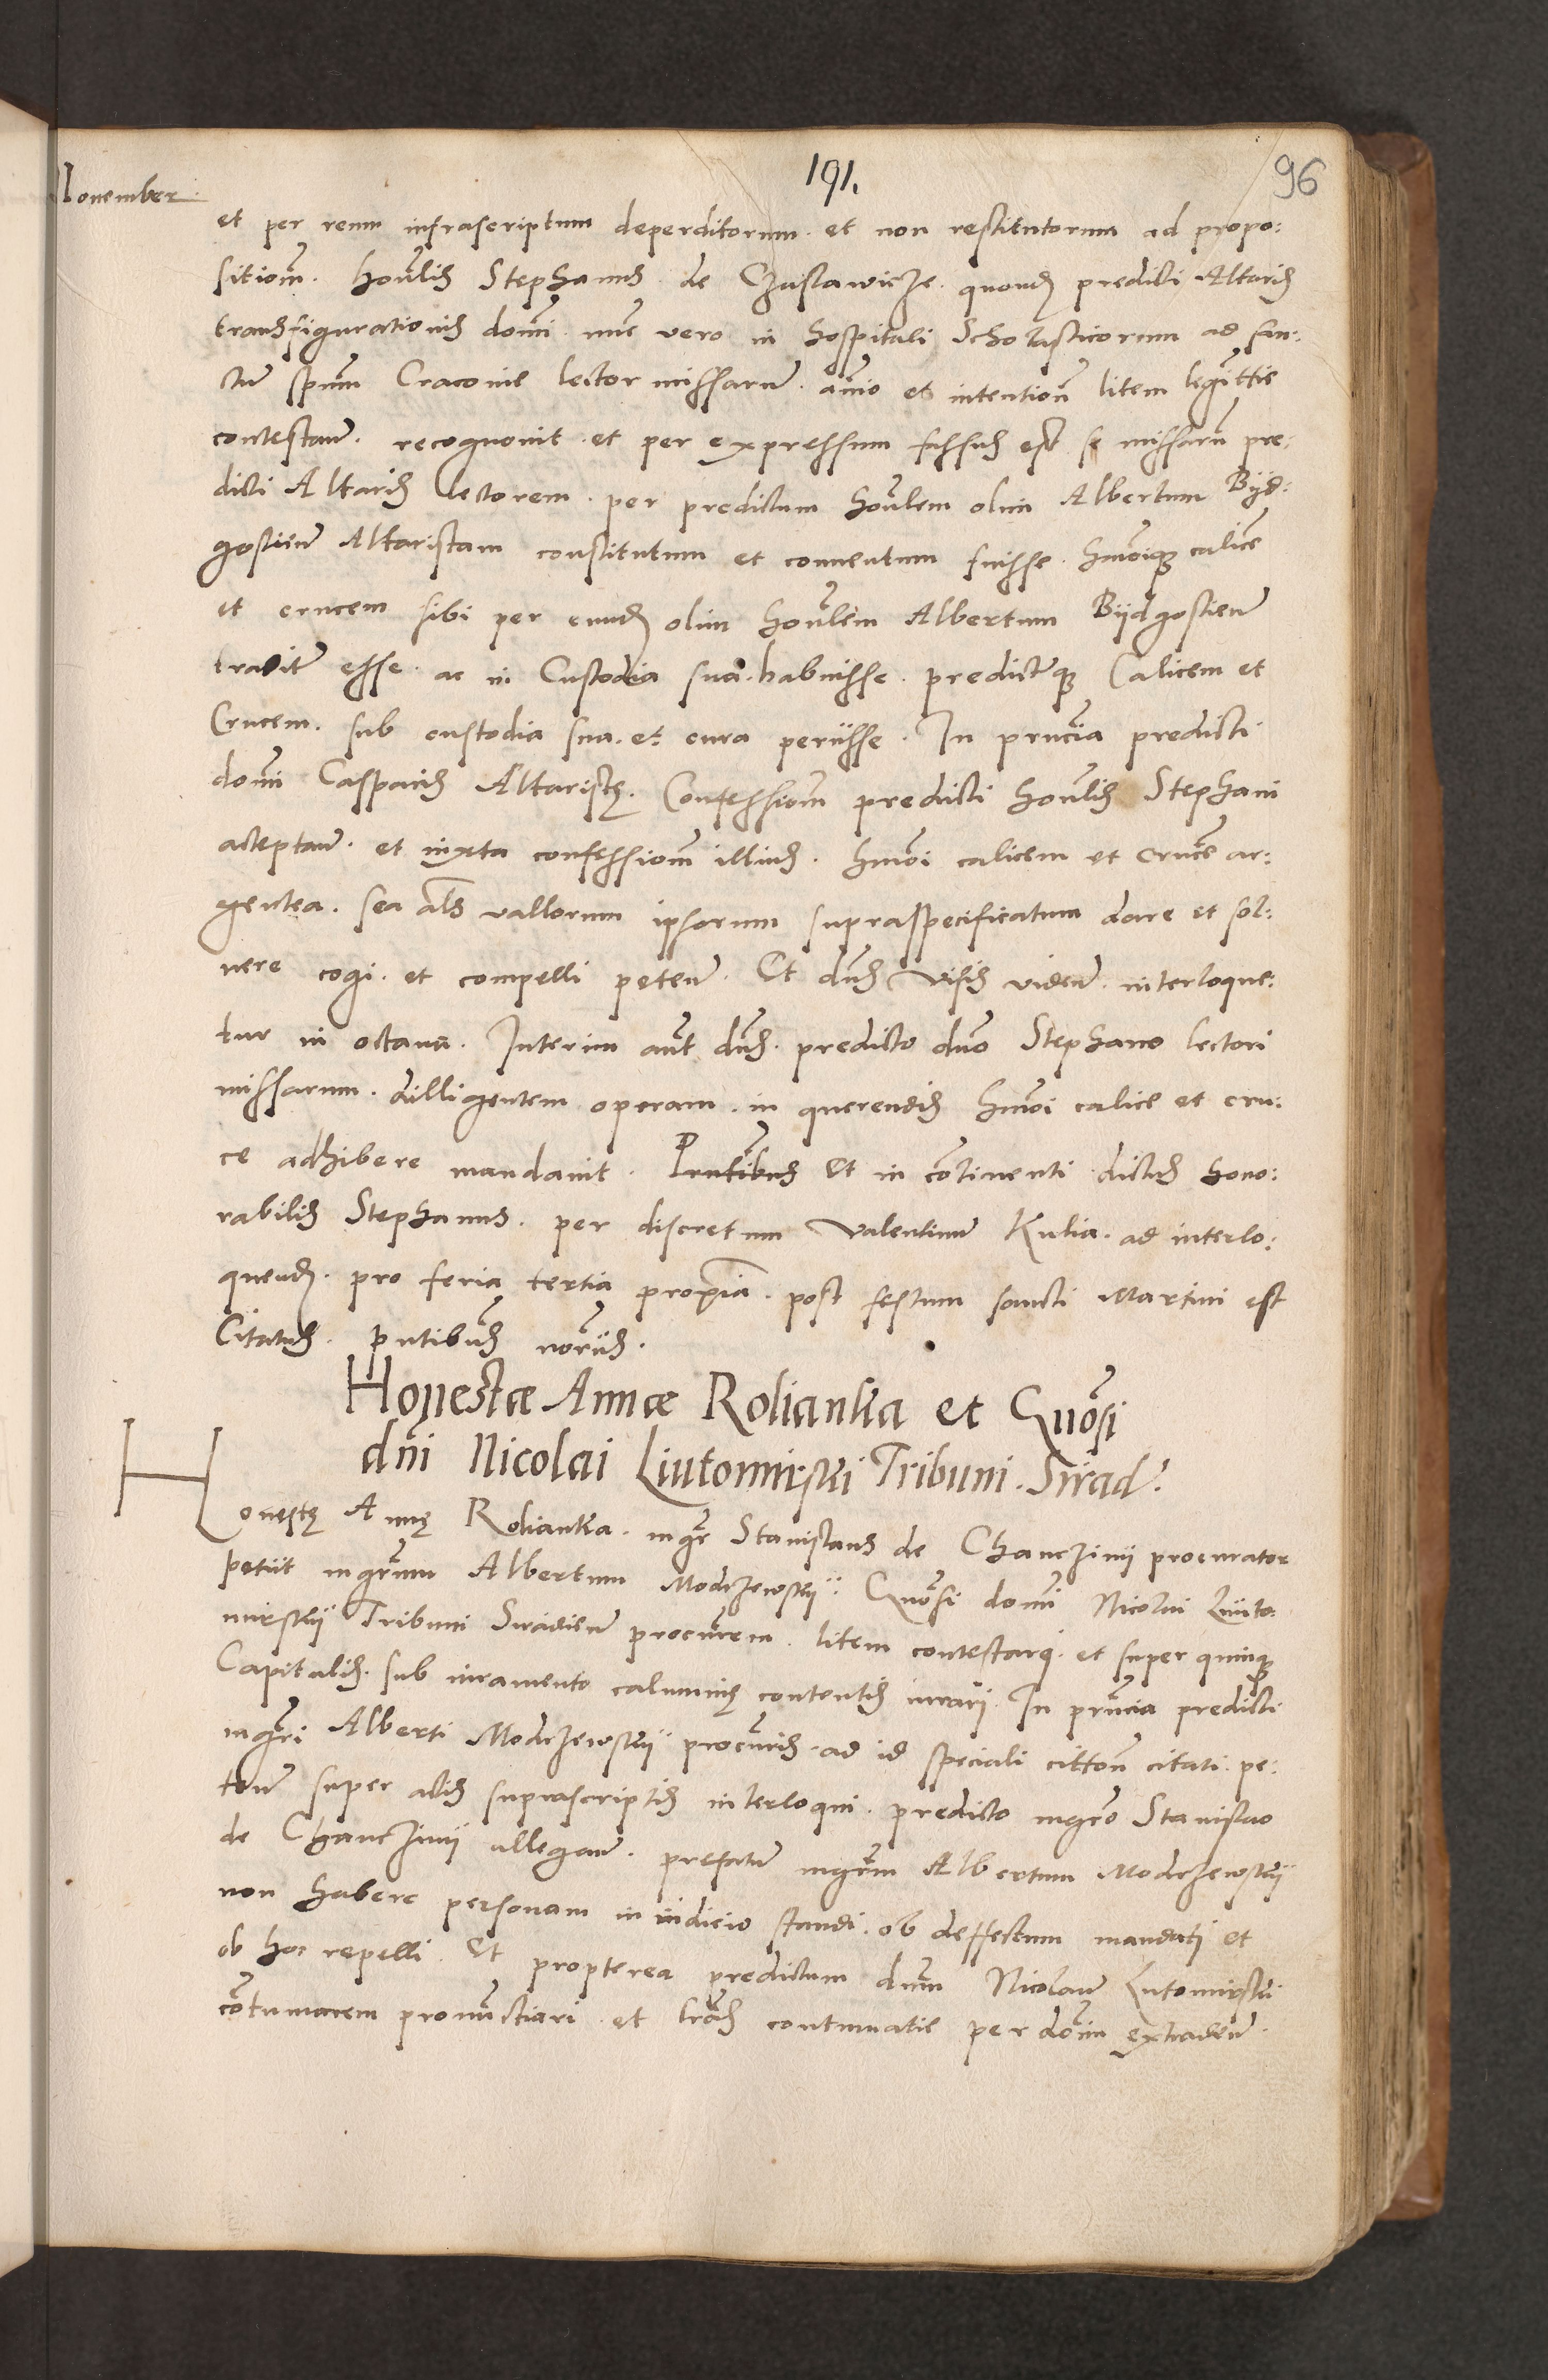 191.
96
Nouember
et per reum infrascriptum deperditorum. et non restitutorum ad propo:
sitiom̃. hoñlis Stephanus de Czastawicze. quond. predicti Altaris
transfigurationis domĩ. nũc vero in hospitali Scholasticorum ad san:
ctũ spũm Cracouie lector missarum. aĩo et intentioñ litem legittĩe
contestañ. recognouit. et per expressum fassus est se missarũ pre:
dicti Altaris lectorem. per predictum hoñlem olim Albertum Bijd:
gostieñ Altaristam constitutum et conuentum fuisse. hmõique calicẽ
et crucem sibi per eund. olim hoñlem Albertum Bijdgostieñ
traditũ esse. ac in Custodia sua. habuisse. predictũque Calicem et
Crucem. sub custodia sua. et cura periisse. In pñcia predicti
domĩ Casparis Altaristę. Confessiom̃ predicti hoñlis Stephani
acceptañ. et iuxta confessiom̃ illius. hmõi calicem et crucẽ ar:
gentea. seu als vallorum ipsorum supraspecificatum dare et sol:
uere cogi. et compelli peteñ. Et dñs visis videñ. interloque:
tur in octaua. Interim aũt dñs. predicto dño Stephano lectori
missarum. dilligentem operam. in querendis hmõi calice et cru:
ce adhibere mandauit. Pñtibus Et in cõtinenti dictus hono:
rabilis Stephanus. per discretum Valentinum Kulia. ad interlo:
quend. pro feria tertia proxĩa. post festum sancti Martini est
Citatus. pñtibus norũs.
Honestæ Annæ Rolianka et Gñosi
dñi Nicolai Liutomirski Tribuni. Sirad.
Honestę Annę Rolianka. mgr̃ Stanislaus de Chanczinij procurator
petiit mgr̃um Albertum Modrzewskij. Gñosi domĩ Nicolai Liuto
mirskij Tribuni Siradieñ procũrem. litem contestari. et super quinque
Capitalis. sub iuramento calumnię contentis iurari. In pñcia predicti
mgr̃i Alberti Modrzewskij procũris. ad id speciali cittoñ citati. pe:
teñ super actis suprascriptis interloqui. predicto mgr̃o Stanislao
de Chanczinij allegañ. prefatũ mgr̃m Albertum Modrzewskij
non habere personam in iudicio standi. ob deffectum mandati et
ob hoc repelli. Et propterea predictum dñum Nicolaum Lutomirskij
cõtumacem pronũctiari. et lrãs contumatie per domĩ extradeñ.